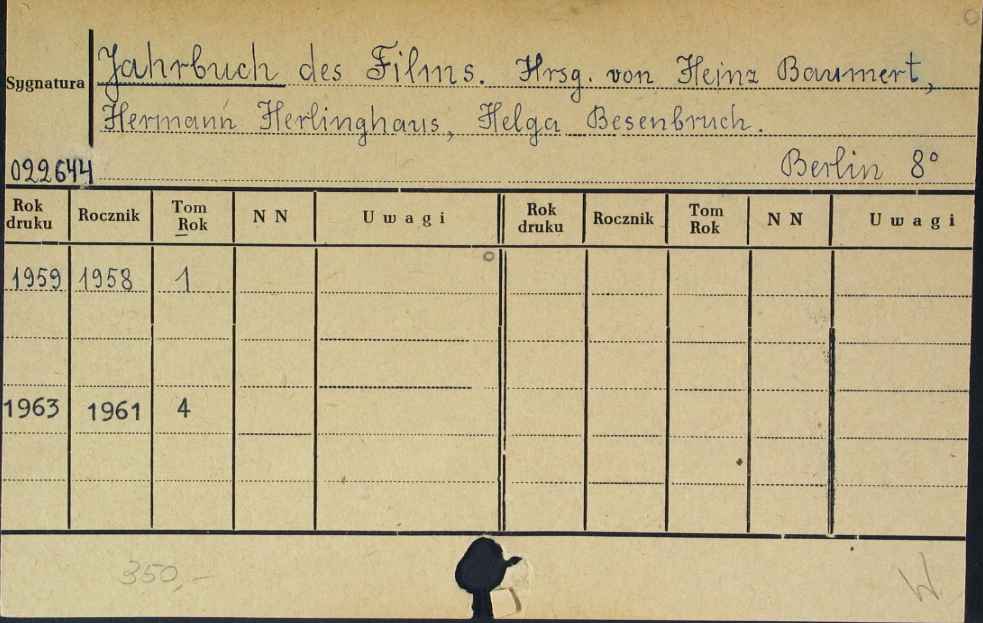 Sygnatura
Jahrbuch des Films. Hrsg. von Heinz Baumert,
Hermann Herlinghaus, Helga Besenbruch.
022644
Berlin 8°
Rok druku Rocznik Tom Rok N N Uwagi Rok druku Rocznik Tom Rok N N Uwagi
1959 1958 1
1963 1961 4
350,-
W